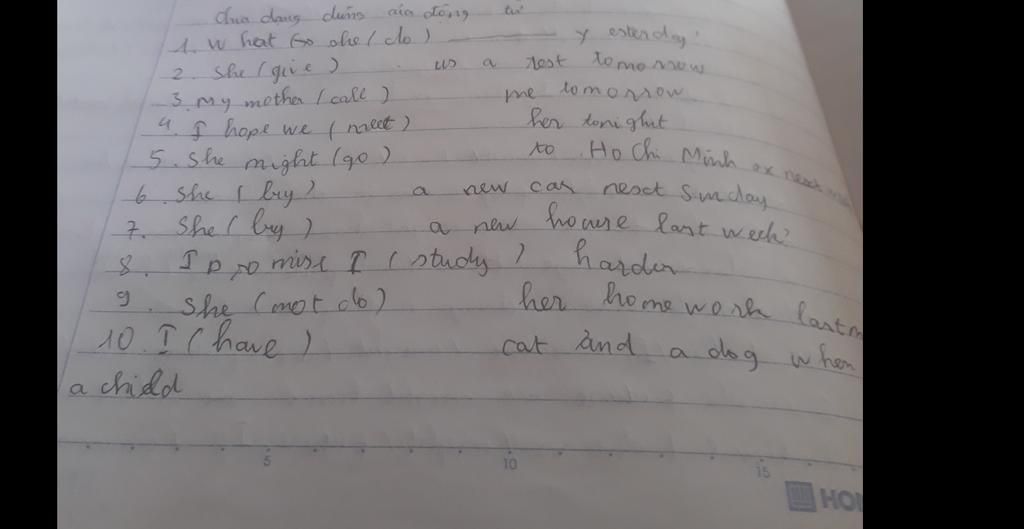 Chia dạng đúng của động từ
1. What she / do) ———— yesterday?
2. She (give) us a test tomorrow
3. My mother (call) me tomorrow
4. I hope we (meet) her tonight
5. She might (go) to Ho Chi Minh next
6. She (buy) a new car next Sunday
7. She (buy) a new house last week?
8. I promise I (study) harder
9. She (not do) her homework last
10. I (have) cat and a dog when
a child
5 10 15
HO